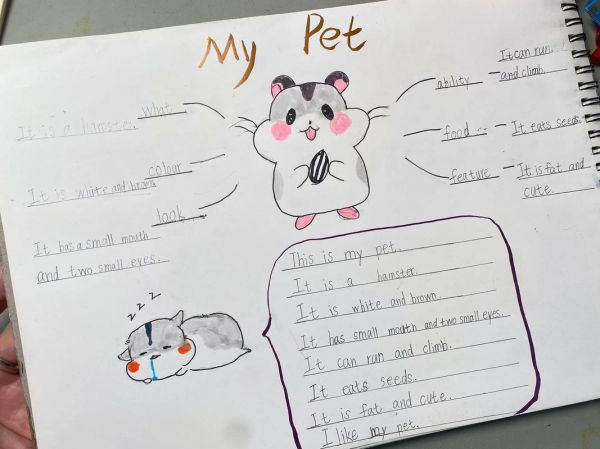 My Pet
what
It is a hamster.
colour
It is white and brown.
look
It has a small mouth
and two small eyes.
ability
It can run.
and climb.
food
It eats seeds.
feature
It is fat and
cute.
z z z
This is my pet.
It is a hamster.
It is white and brown.
It has small mouth and two small eyes.
It can run and climb.
It eats seeds.
It is fat and cute.
I like my pet.